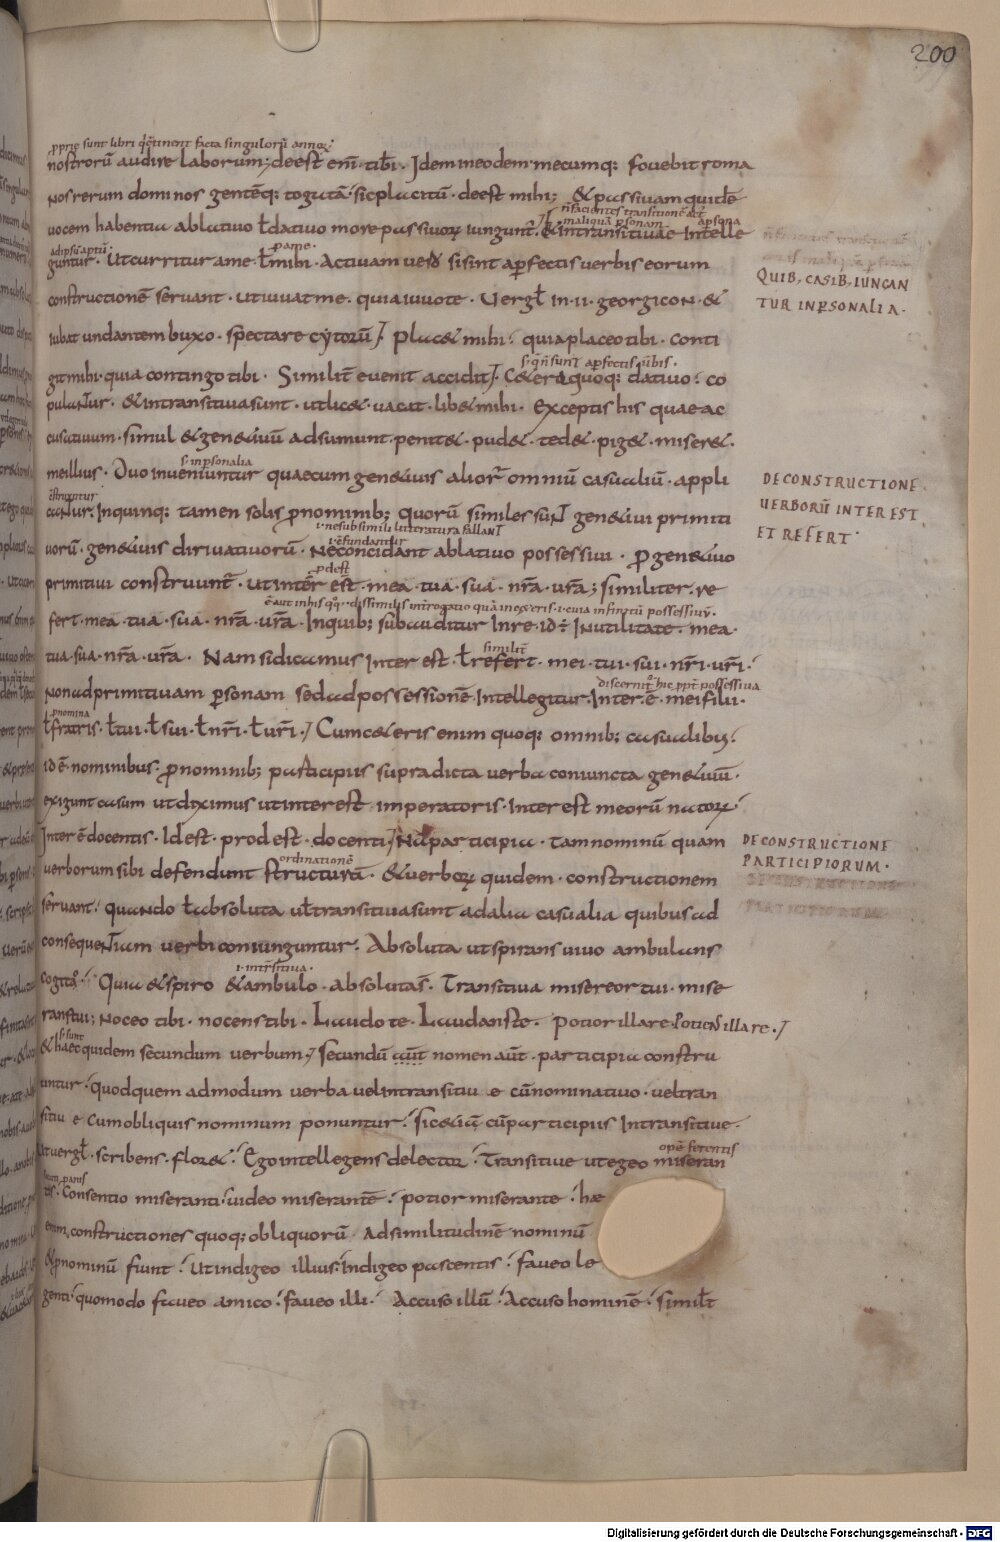 200
ꝓprie sunt libri q̄ ꝯtinent facta singulorū annoꝝ
nostrorū audire laborum; deest enī· tibi· Idem meodem mecumq; fovebit roma
Nos rerum dominos gentēq; togatā· sic placitū· deest mihi; & passivam quidē
vocem habentia ablativo ł dativo more passivoꝝ iungunt̄· & intransitivae intelle
guntur· Ut curritur a me· ł mihi· Activam vero si sint a ꝑfectis verbis eorum
constructionē servant· ut iuvat me· quia iuvo te· Vergł in·ii·georgicon· &
iubat undantem buxo· spectare cytorū· Plac& mihi· quia placeo tibi· Conti
git mihi· quia contingo tibi· Similit̄ evenit accidit· C&era quoq; dativo· co
pulantur· & intransitiva sunt· ut lic& vacat· lib& mihi· Exceptis his quae ac
cusativum· simul & gen&ivū adsumunt· penit&· pud&· ted&· pig&· miser&·
s· inꝑsonalia
me illius· Duo inveniuntur quae cum gen&ivis alioꝝ omniū casualiū· appli
cantur· In quinq; tamen solis ꝓnominib; quorū similes sunt gen&ivi primiti
vorū· gen&ivis dirivativorū· Ne concidant ablativo possessivi· ꝓ gen&ivo
primitivi construunt̄· ut inter est· mea· tua· sua· nr̄a· vr̄a; similiter· re
fert· mea· tua· sua· nr̄a· vr̄a· In quib; subauditur in re· id ÷ in utilitate· mea·
similit̄
tua· sua· nr̄a· vr̄a· Nam si dicamus inter est· ł refert· mei· tui· sui· nr̄i· vr̄i·
Non ad primitivam ꝑsonam sed ad possessionē· intellegitur· inter ē· mei filii·
ꝓnomina
ł fratris· ł tui· ł sui· ł nr̄i· ł vr̄i· Cum c&eris enim quoq; omnib; casualibus·
id ē· nominibus· ꝓnominib; participiis supradicta verba coniuncta gen&ivū·
exigunt casum ut diximus ut interest imperatoris· Inter est meorū natoꝝ·
Inter ē docentis· Id est· prodest· docenti· Nā participia· tam nominū quam
ordinationē
verborum sibi defendunt structurā· & verboꝝ quidem· constructionem
servant· Quando ł absoluta vł transitiva sunt ad alia casualia quibus ad
consequentiam verbi coniunguntur· Absoluta ut spirans vivo ambulans
cogito· Quia & spiro & ambulo· absoluta s̄· Transitiva misereor tui· mise
rans tui; Noceo tibi· nocens tibi· Laudo te· Laudans te· Potior illa re· Potiens illa re·
& haec quidem secundum verbum· secundū aut̄ nomen aūt· participia constru
untur· quodquem admodum verba vel intransitiv e· cū nominativo· vel tran
sitiv e cum obliquis nominum ponuntur· sic &iā cū participiis Intransitive·
opē ferentis
ut vergł· scribens· flor&· Ego intellegens delector· Transitive ut egeo miseran
tis· Consentio miseranti· video miserantē· potior miserante· hae
enim constructiones quoq; obliquorū Ad similitudinē nominū
& ꝓnominū fiunt· Ut indigeo illius· Indigeo pascentis· faveo le
genti· quomodo faveo amico· faveo illi· Accuso illū· Accuso hominē· similit̄
QUIB, CASIB, IUNGAN
TUR INPSONALIA·
DE CONSTRUCTIONE
VERBORŪ INTER EST
ET REFERT·
DE CONSTRUCTIONE
PARTICIPIORUM·
Digitalisierung gefördert durch die Deutsche Forschungsgemeinschaft - DFG